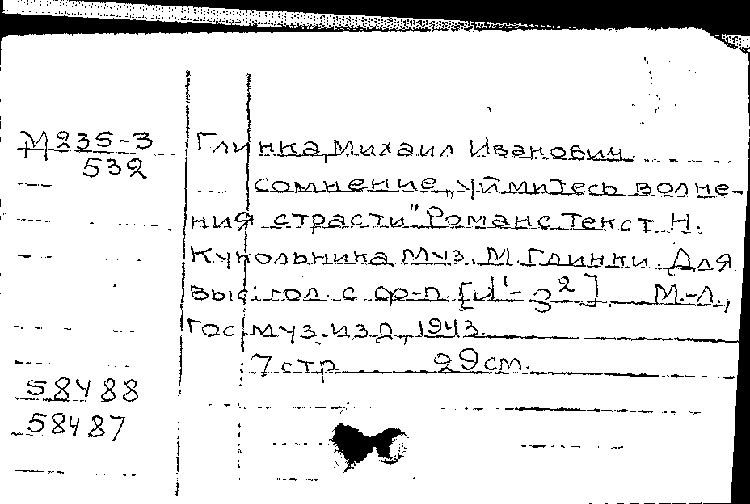 М 235-3
532
Глинка, Михаил Иванович
Сомнение, "уймитесь волне-
ния страсти" Романс. Текст Н.
Кукольника Муз. М. Глинки. Для
выс. гол. с ф-п [d¹-з²]. М.-Л.,
Гос. муз. изд, 1943.
7 стр 29 см.
58488
58487